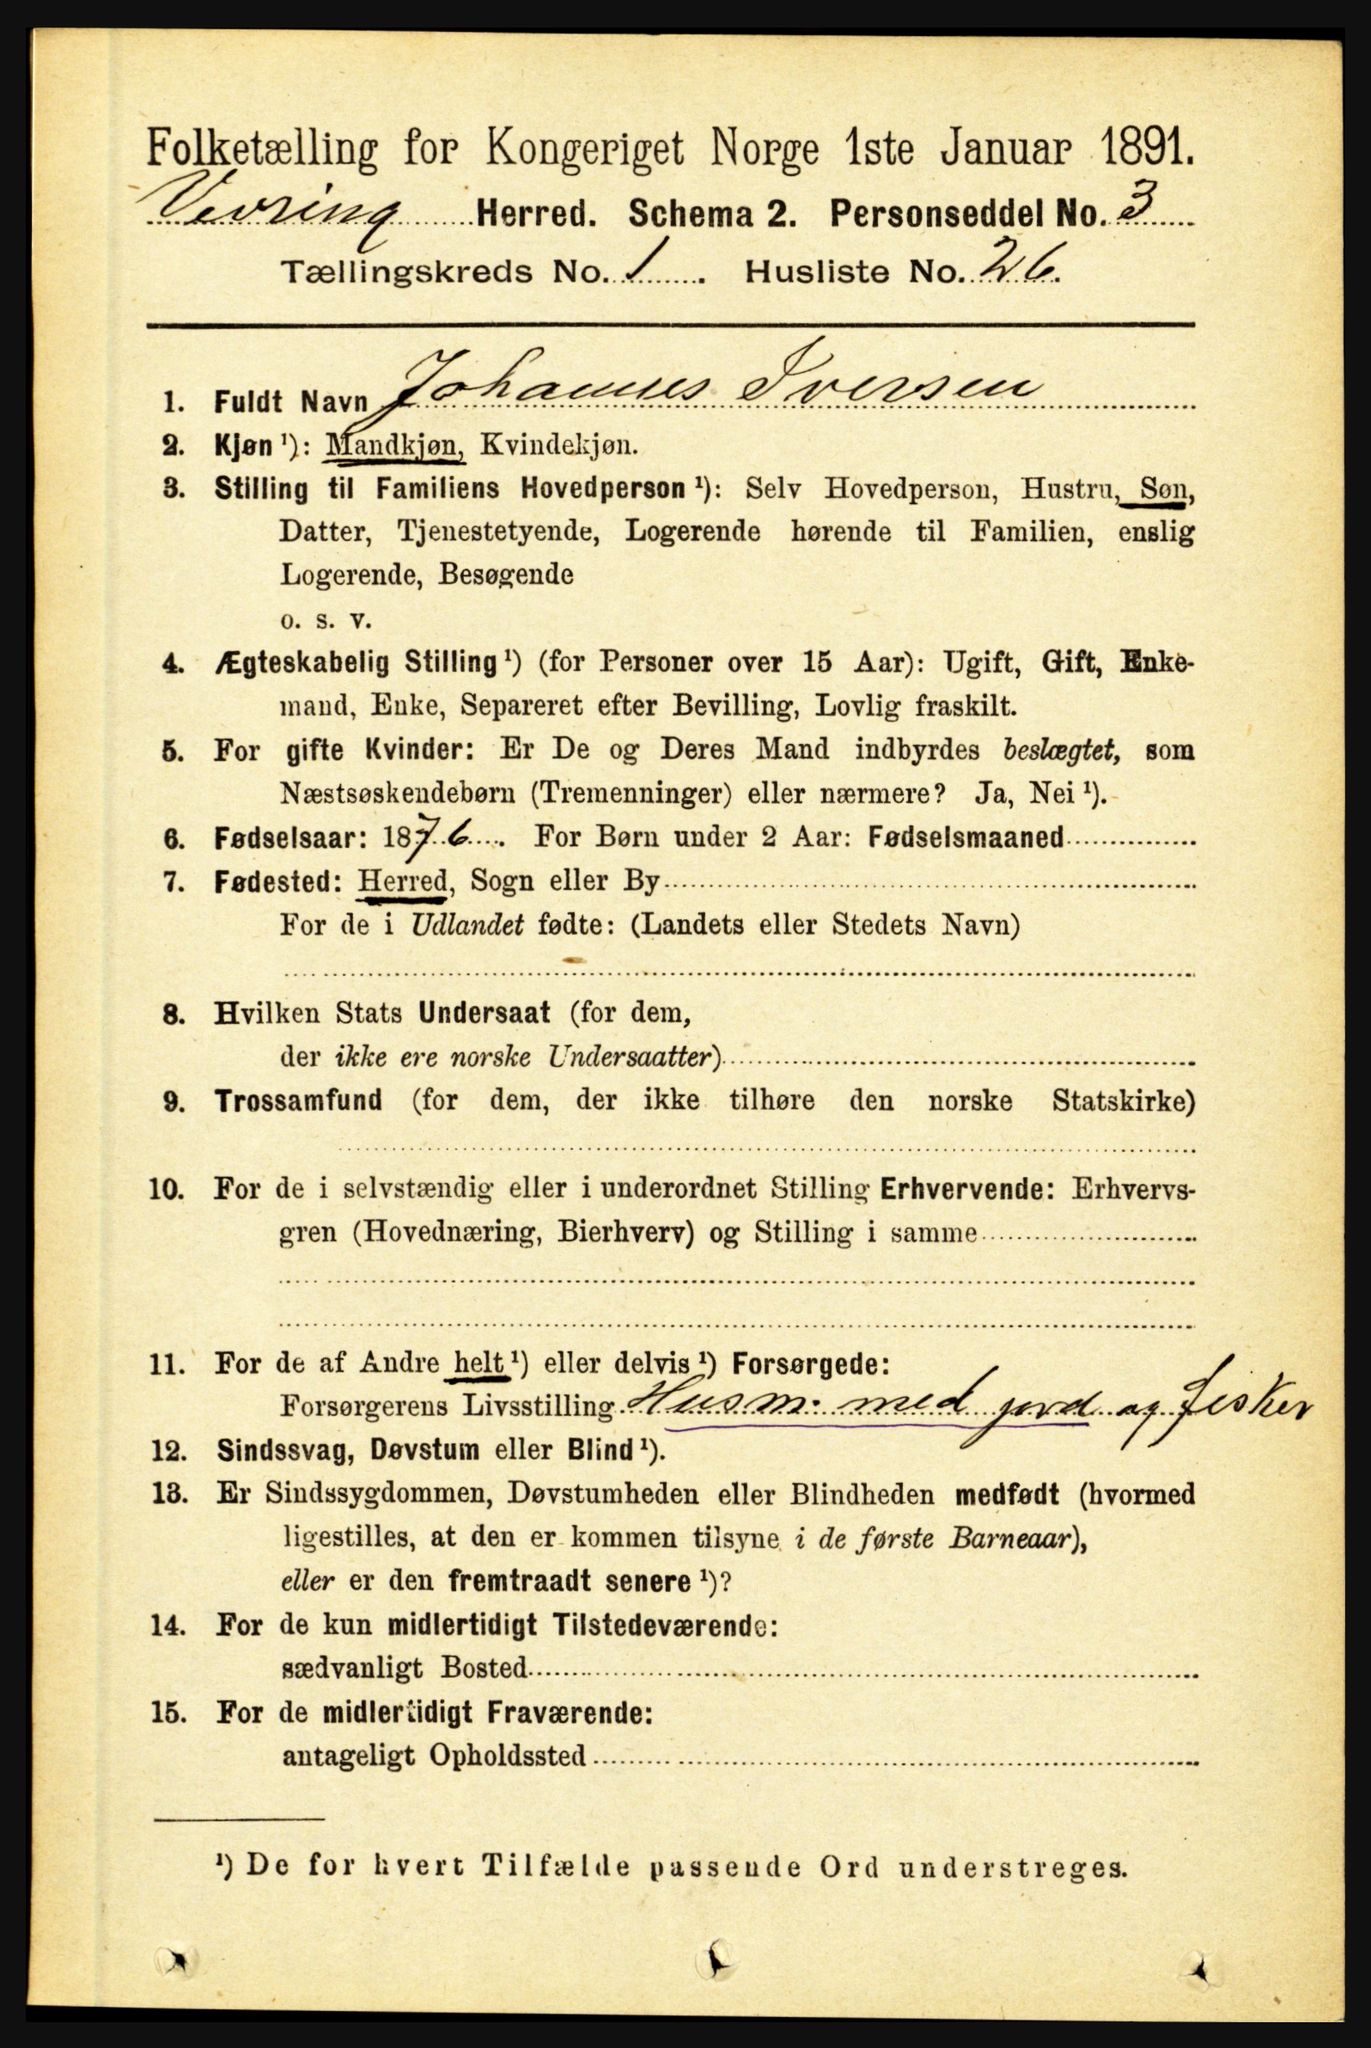 Folketælling for Kongeriget Norge 1ste Januar 1891.
Vevring Herred. Schema 2. Personseddel No. 3
Tællingskreds No. 1. Husliste No. 26.
1. Fuldt Navn Johannes Iversen
2. Kjøn ¹): Mandkjøn, Kvindekjøn.
3. Stilling til Familiens Hovedperson ¹): Selv Hovedperson, Hustru, Søn,
Datter, Tjenestetyende, Logerende hørende til Familien, enslig
Logerende, Besøgende
o. s. v.
4. Ægteskabelig Stilling ¹) (for Personer over 15 Aar): Ugift, Gift, Enke-
mand, Enke, Separeret efter Bevilling, Lovlig fraskilt.
5. For gifte Kvinder: Er De og Deres Mand indbyrdes beslægtet, som
Næstsøskendebørn (Tremenninger) eller nærmere? Ja, Nei ¹).
6. Fødselsaar: 1876. For Børn under 2 Aar: Fødselsmaaned
7. Fødested: Herred, Sogn eller By
For de i Udlandet fødte: (Landets eller Stedets Navn)
8. Hvilken Stats Undersaat (for dem,
der ikke ere norske Undersaatter)
9. Trossamfund (for dem, der ikke tilhøre den norske Statskirke)
10. For de i selvstændig eller i underordnet Stilling Erhvervende: Erhvervs-
gren (Hovednæring, Bierhverv) og Stilling i samme
11. For de af Andre helt ¹) eller delvis ¹) Forsørgede:
Forsørgerens Livsstilling Husm. med jord og fisker
12. Sindssvag, Døvstum eller Blind ¹).
13. Er Sindssygdommen, Døvstumheden eller Blindheden medfødt (hvormed
ligestilles, at den er kommen tilsyne i de første Barneaar),
eller er den fremtraadt senere ¹)?
14. For de kun midlertidigt Tilstedeværende:
sædvanligt Bosted
15. For de midlertidigt Fraværende:
antageligt Opholdssted
¹) De for hvert Tilfælde passende Ord understreges.